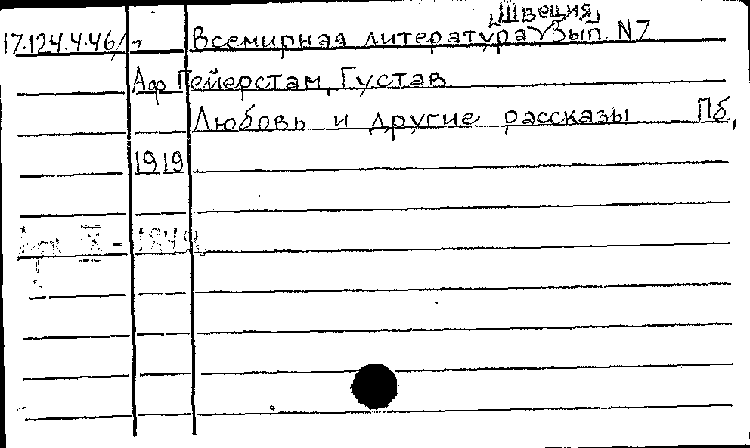 Швеция
17.124.4.46/ Всемирная литература Вып. N7
Аф Гейерстам, Густав
Любовь и другие рассказы Пб,
1919